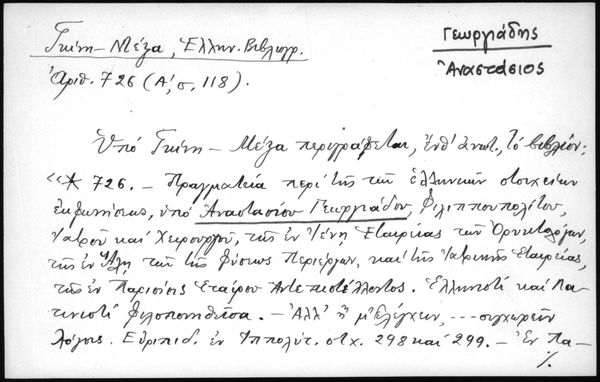 Γκίνη – Μέξα, Ἑλλην. Βιβλιογρ.
Γεωργιάδης
Ἀναστάσιος
Ἀριθ. 726 (Α', σ. 118).
Ὑπὸ Γκίνη – Μέξα περιγράφεται, ἔνθ' ἀνωτ., τὸ βιβλίον:
«* 726. – Πραγματεία περὶ τῆς τῶν ἑλληνικῶν στοιχείων
ἐκφωνήσεως, ὑπὸ Ἀναστασίου Γεωργιάδου, Φιλιππουπολίτου,
Ἰατροῦ καὶ Χειρουργοῦ, τῆς ἐν Ἰένῃ Ἑταιρείας τῶν Ὀρυκτολόγων,
τῆς ἐν Ἄλῃ τῶν τῆς φύσεως Περιέργων, καὶ τῆς Ἰατρικῆς Ἑταιρείας,
τῆς ἐν Παρισίοις Ἑταίρου Ἀντεπιστέλλοντος. Ἑλληνιστὶ καὶ Λα-
τινιστὶ φιλοπονηθεῖσα. – Ἀλλ' ἢ μ' ἐλέγχειν, --- συγχωρεῖν
λόγοις. Εὐριπιδ. ἐν Ἱππολύτ. στχ. 298 καὶ 299. – Ἐν Πα-
%.